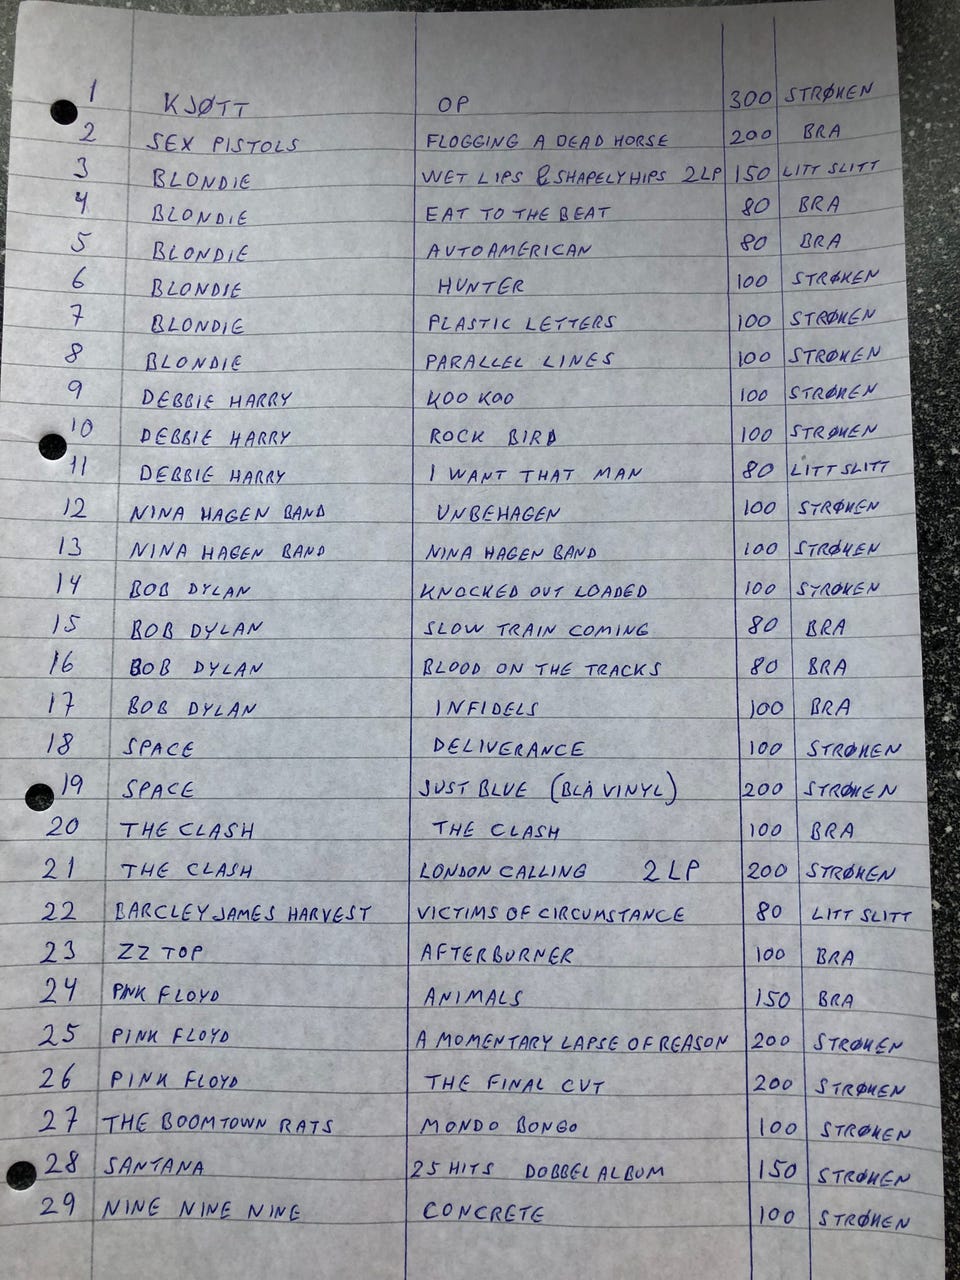 1 KJØTT OP 300 STRØKEN
2 SEX PISTOLS FLOGGING A DEAD HORSE 200 BRA
3 BLONDIE WET LIPS & SHAPELY HIPS 2LP 150 LITT SLITT
4 BLONDIE EAT TO THE BEAT 80 BRA
5 BLONDIE AUTOAMERICAN 80 BRA
6 BLONDIE HUNTER 100 STRØKEN
7 BLONDIE PLASTIC LETTERS 100 STRØKEN
8 BLONDIE PARALLEL LINES 100 STRØKEN
9 DEBBIE HARRY KOO KOO 100 STRØKEN
10 DEBBIE HARRY ROCK BIRD 100 STRØKEN
11 DEBBIE HARRY I WANT THAT MAN 80 LITT SLITT
12 NINA HAGEN BAND UNBEHAGEN 100 STRØKEN
13 NINA HAGEN BAND NINA HAGEN BAND 100 STRØKEN
14 BOB DYLAN KNOCKED OUT LOADED 100 STRØKEN
15 BOB DYLAN SLOW TRAIN COMING 80 BRA
16 BOB DYLAN BLOOD ON THE TRACKS 80 BRA
17 BOB DYLAN INFIDELS 100 BRA
18 SPACE DELIVERANCE 100 STRØKEN
19 SPACE JUST BLUE (BLÅ VINYL) 200 STRØKEN
20 THE CLASH THE CLASH 100 BRA
21 THE CLASH LONDON CALLING 2 LP 200 STRØKEN
22 BARCLEY JAMES HARVEST VICTIMS OF CIRCUMSTANCE 80 LITT SLITT
23 ZZ TOP AFTERBURNER 100 BRA
24 PINK FLOYD ANIMALS 150 BRA
25 PINK FLOYD A MOMENTARY LAPSE OF REASON 200 STRØKEN
26 PINK FLOYD THE FINAL CUT 200 STRØKEN
27 THE BOOMTOWN RATS MONDO BONGO 100 STRØKEN
28 SANTANA 25 HITS DOBBEL ALBUM 150 STRØKEN
29 NINE NINE NINE CONCRETE 100 STRØKEN